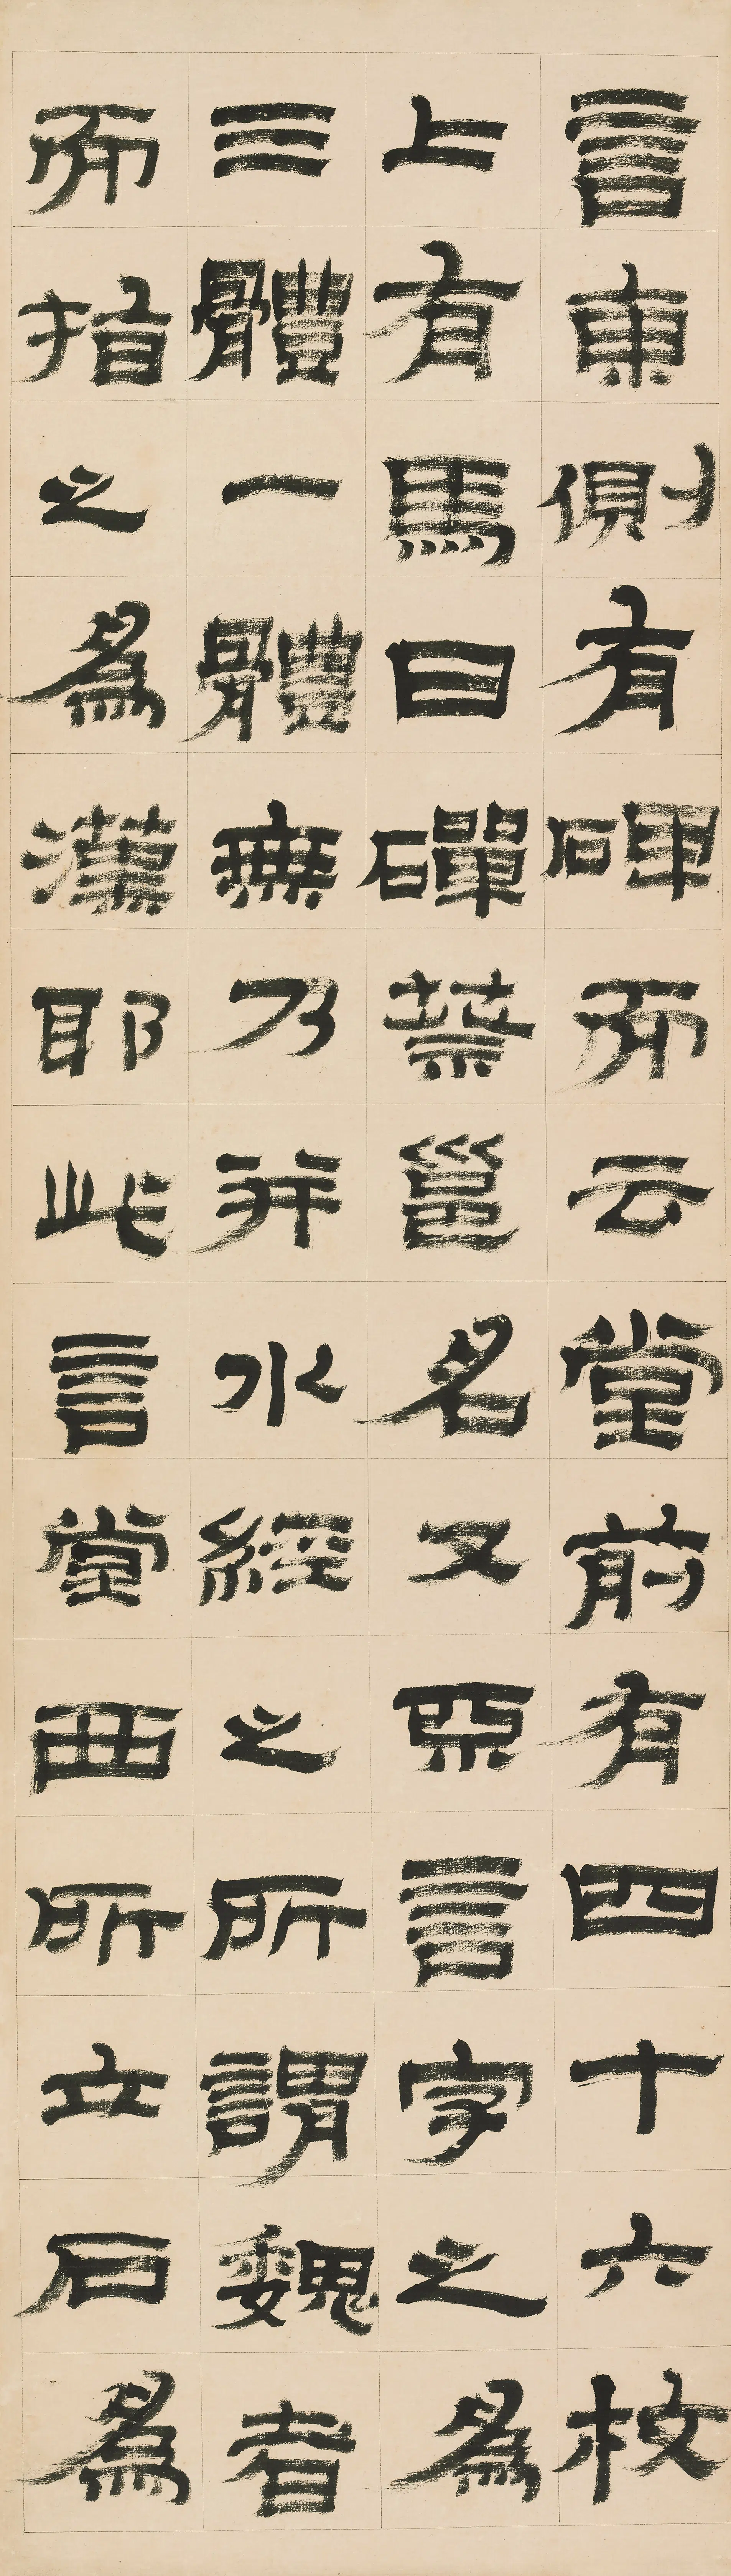 言東側有碑而云堂前有四十六枚
上有馬日磾蔡邕名又亟言字之爲
三體一體無乃並水經之所謂魏者
而指之爲漢耶此言堂西所立石爲